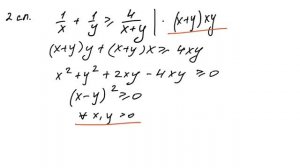 2 сп. 1/x + 1/y ≥ 4/(x+y) | · (x+y)xy
(x+y)y + (x+y)x ≥ 4xy
x² + y² + 2xy - 4xy ≥ 0
(x-y)² ≥ 0
∀ x, y > 0